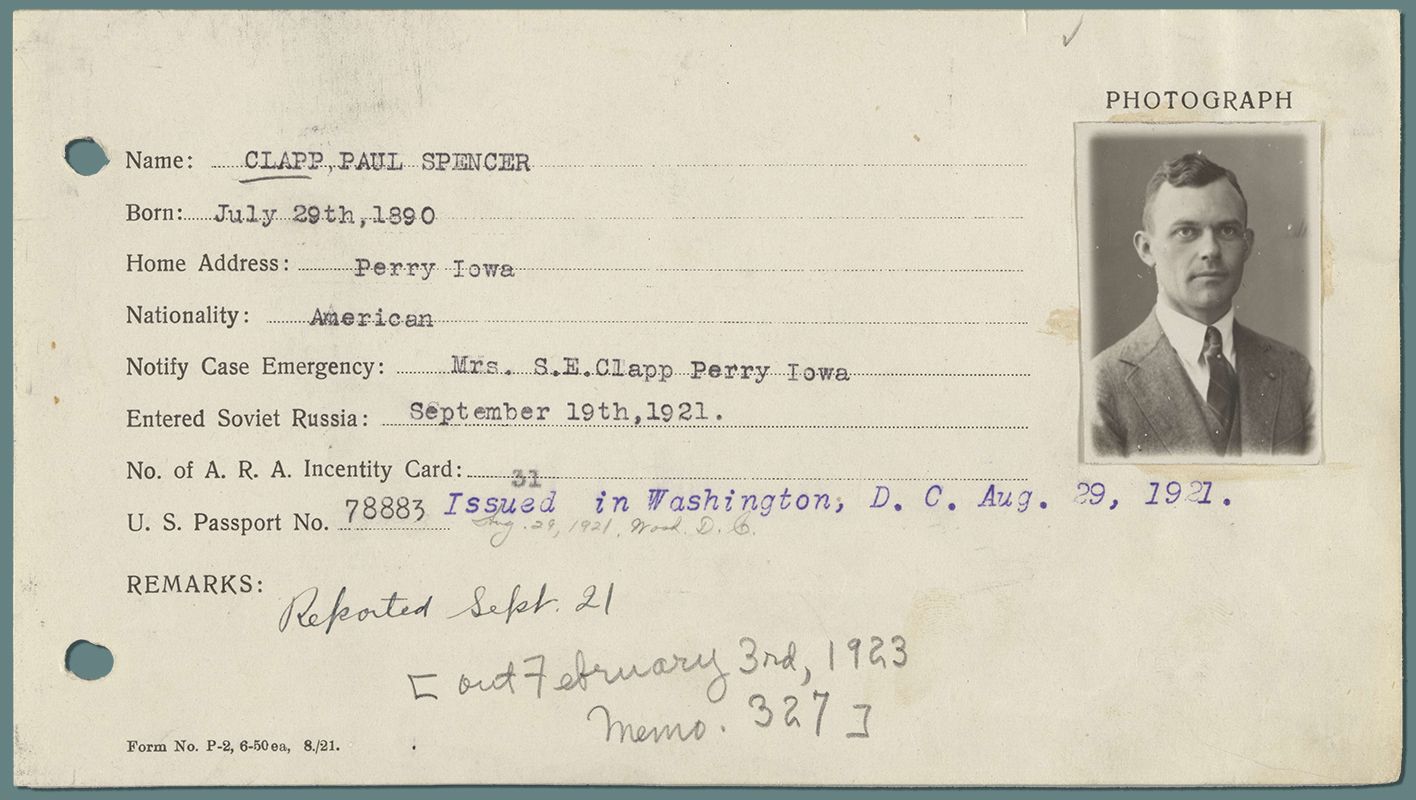 PHOTOGRAPH
Name: CLAPP, PAUL SPENCER
Born: July 29th,1890
Home Address: Perry Iowa
Nationality: American
Notify Case Emergency: Mrs. S.E.Clapp Perry Iowa
Entered Soviet Russia: September 19th,1921.
No. of A. R. A. Incentity Card: 31
U. S. Passport No. 78883 Issued in Washington, D. C. Aug. 29, 1921.
Aug. 29, 1921, Wash. D. C.
REMARKS:
Reported Sept. 21
[ out February 3rd, 1923
Memo. 327 ]
Form No. P-2, 6-50 ea, 8./21.